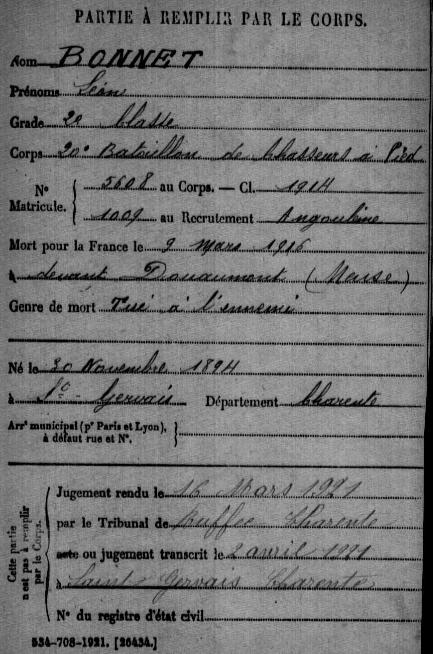 PARTIE À REMPLIR PAR LE CORPS.
Nom BONNET
Prénoms Léon
Grade 2e Classe
Corps 20e Bataillon de Chasseurs à Pied
N° Matricule. { 5608 au Corps. — Cl. 1914
1009 au Recrutement Angoulême
Mort pour la France le 9 mars 1916
à devant Douaumont (Meuse)
Genre de mort Tué à l'ennemi
Né le 30 Novembre 1894
à St-Gervais Département Charente
Arrt municipal (pr Paris et Lyon), à défaut rue et N°. }
Cette partie n'est pas à remplir par le Corps.
Jugement rendu le 16 Mars 1921
par le Tribunal de Ruffec Charente
acte ou jugement transcrit le 2 avril 1921
à Saint Gervais Charente
N° du registre d'état civil
534-708-1921. [26434.]